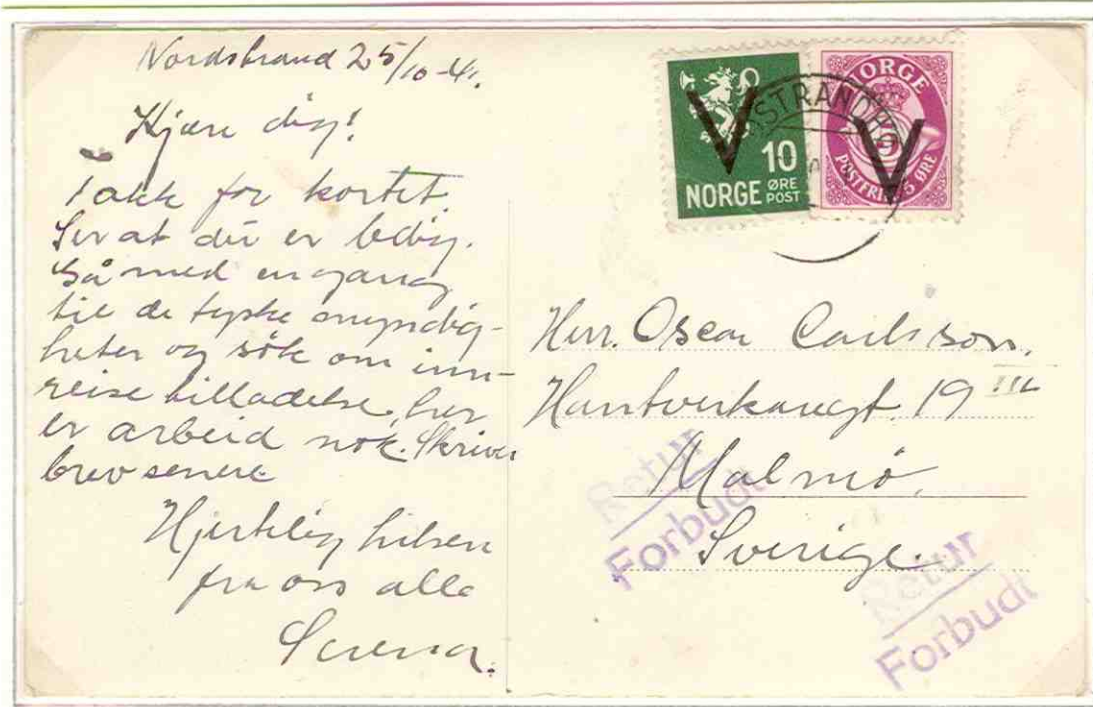 Nordstrand 25/10-41.
Kjære dig!
Takk for kortet
Ser at du er ledig.
Gå med en gang
til de tyske myndig-
heter og søk om inn-
reise tilladelse, her
er arbeid nok. Skriver
brev senere
Hjertelig hilsen
fra oss alle
V
10
NORGE ØRE POST
NORGE
V
5
POSTFRIM 5 ØRE
STRAND
Herr. Oscar Carlsson.
Hantverkaregt. 19 III
Malmö,
Sverige.
Retur
Forbudt
Retur
Forbudt